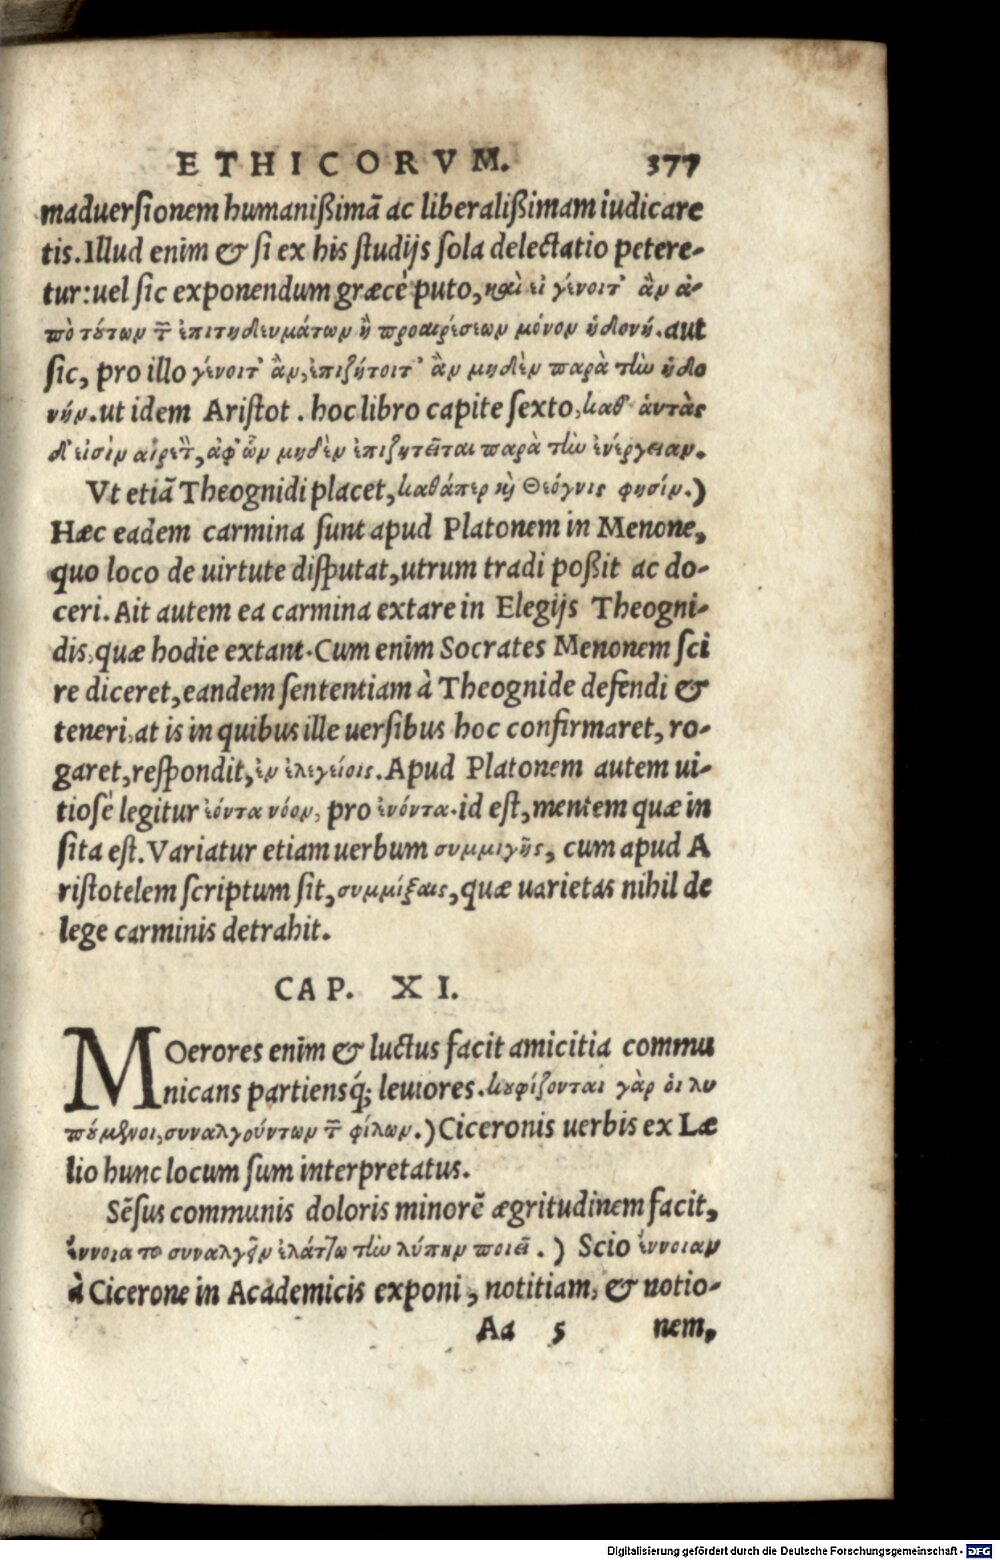 ETHICORVM. 377
maduersionem humanißimā ac liberalißimam iudicare
tis. Illud enim & si ex his studijs sola delectatio petere-
tur: uel sic exponendum græcè puto, καὶ εἰ γένοιτ' ἂν ἀ-
πὸ τούτων τῶν ἐπιτηδευμάτων ἢ προαιρέσεων μόνον ἡδονή. aut
sic, pro illo γένοιτ' ἂν, ἐπιζητοῖτ' ἂν μηδὲν παρὰ τὴν ἡδο
νήν. ut idem Aristot. hoc libro capite sexto, καθ' ἁυτὰς
δ' εἰσὶν αἱρετ, ἀφ' ὧν μηδὲν ἐπιζητεῖται παρὰ τὴν ἐνέργειαν.
Vt etiā Theognidi placet, καθάπερ καὶ Θεόγνις φησίν.)
Hæc eadem carmina sunt apud Platonem in Menone,
quo loco de uirtute disputat, utrum tradi poßit ac do-
ceri. Ait autem ea carmina extare in Elegijs Theogni-
dis, quæ hodie extant. Cum enim Socrates Menonem sci
re diceret, eandem sententiam à Theognide defendi &
teneri, at is in quibus ille uersibus hoc confirmaret, ro-
garet, respondit, ἐν ἐλεγείοις. Apud Platonem autem ui-
tiosè legitur ἐόντα νόον, pro ἐνόντα. id est, mentem quæ in
sita est. Variatur etiam uerbum συμμιγῆς, cum apud A
ristotelem scriptum sit, συμμίξαις, quæ uarietas nihil de
lege carminis detrahit.
CAP. XI.
MOerores enim & luctus facit amicitia commu
nicans partiensq́; leuiores. κουφίζονται γὰρ οἱ λυ
πούμενοι, συναλγούντων τῶν φίλων.) Ciceronis uerbis ex Læ
lio hunc locum sum interpretatus.
Sēsus communis doloris minorē ægritudinem facit,
ἔννοια το συναλγεῖν ἐλάττω τὴν λύπην ποιεῖ.) Scio ἔννοιαν
à Cicerone in Academicis exponi, notitiam, & notio-
Aa 5 nem,
Digitalisierung gefördert durch die Deutsche Forschungsgemeinschaft - DFG